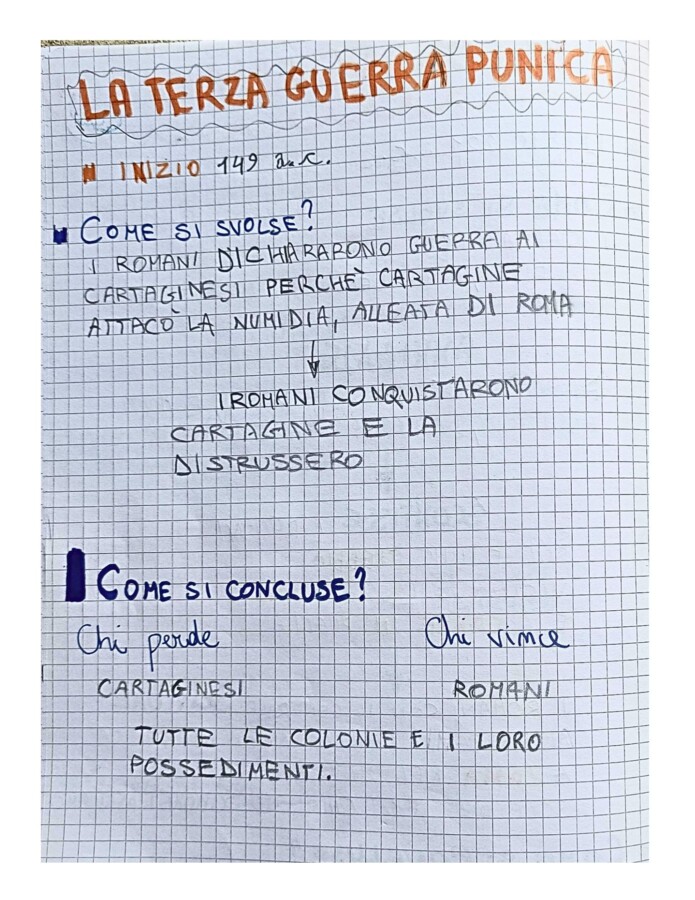 LA TERZA GUERRA PUNICA
INIZIO 149 a.C.
COME SI SVOLSE?
I ROMANI DICHIARARONO GUERRA AI
CARTAGINESI PERCHÈ CARTAGINE
ATTACÒ LA NUMIDIA, ALLEATA DI ROMA
↓
I ROMANI CONQUISTARONO
CARTAGINE E LA
DISTRUSSERO
COME SI CONCLUSE?
Chi perde Chi vince
CARTAGINESI ROMANI
TUTTE LE COLONIE E I LORO
POSSEDIMENTI.